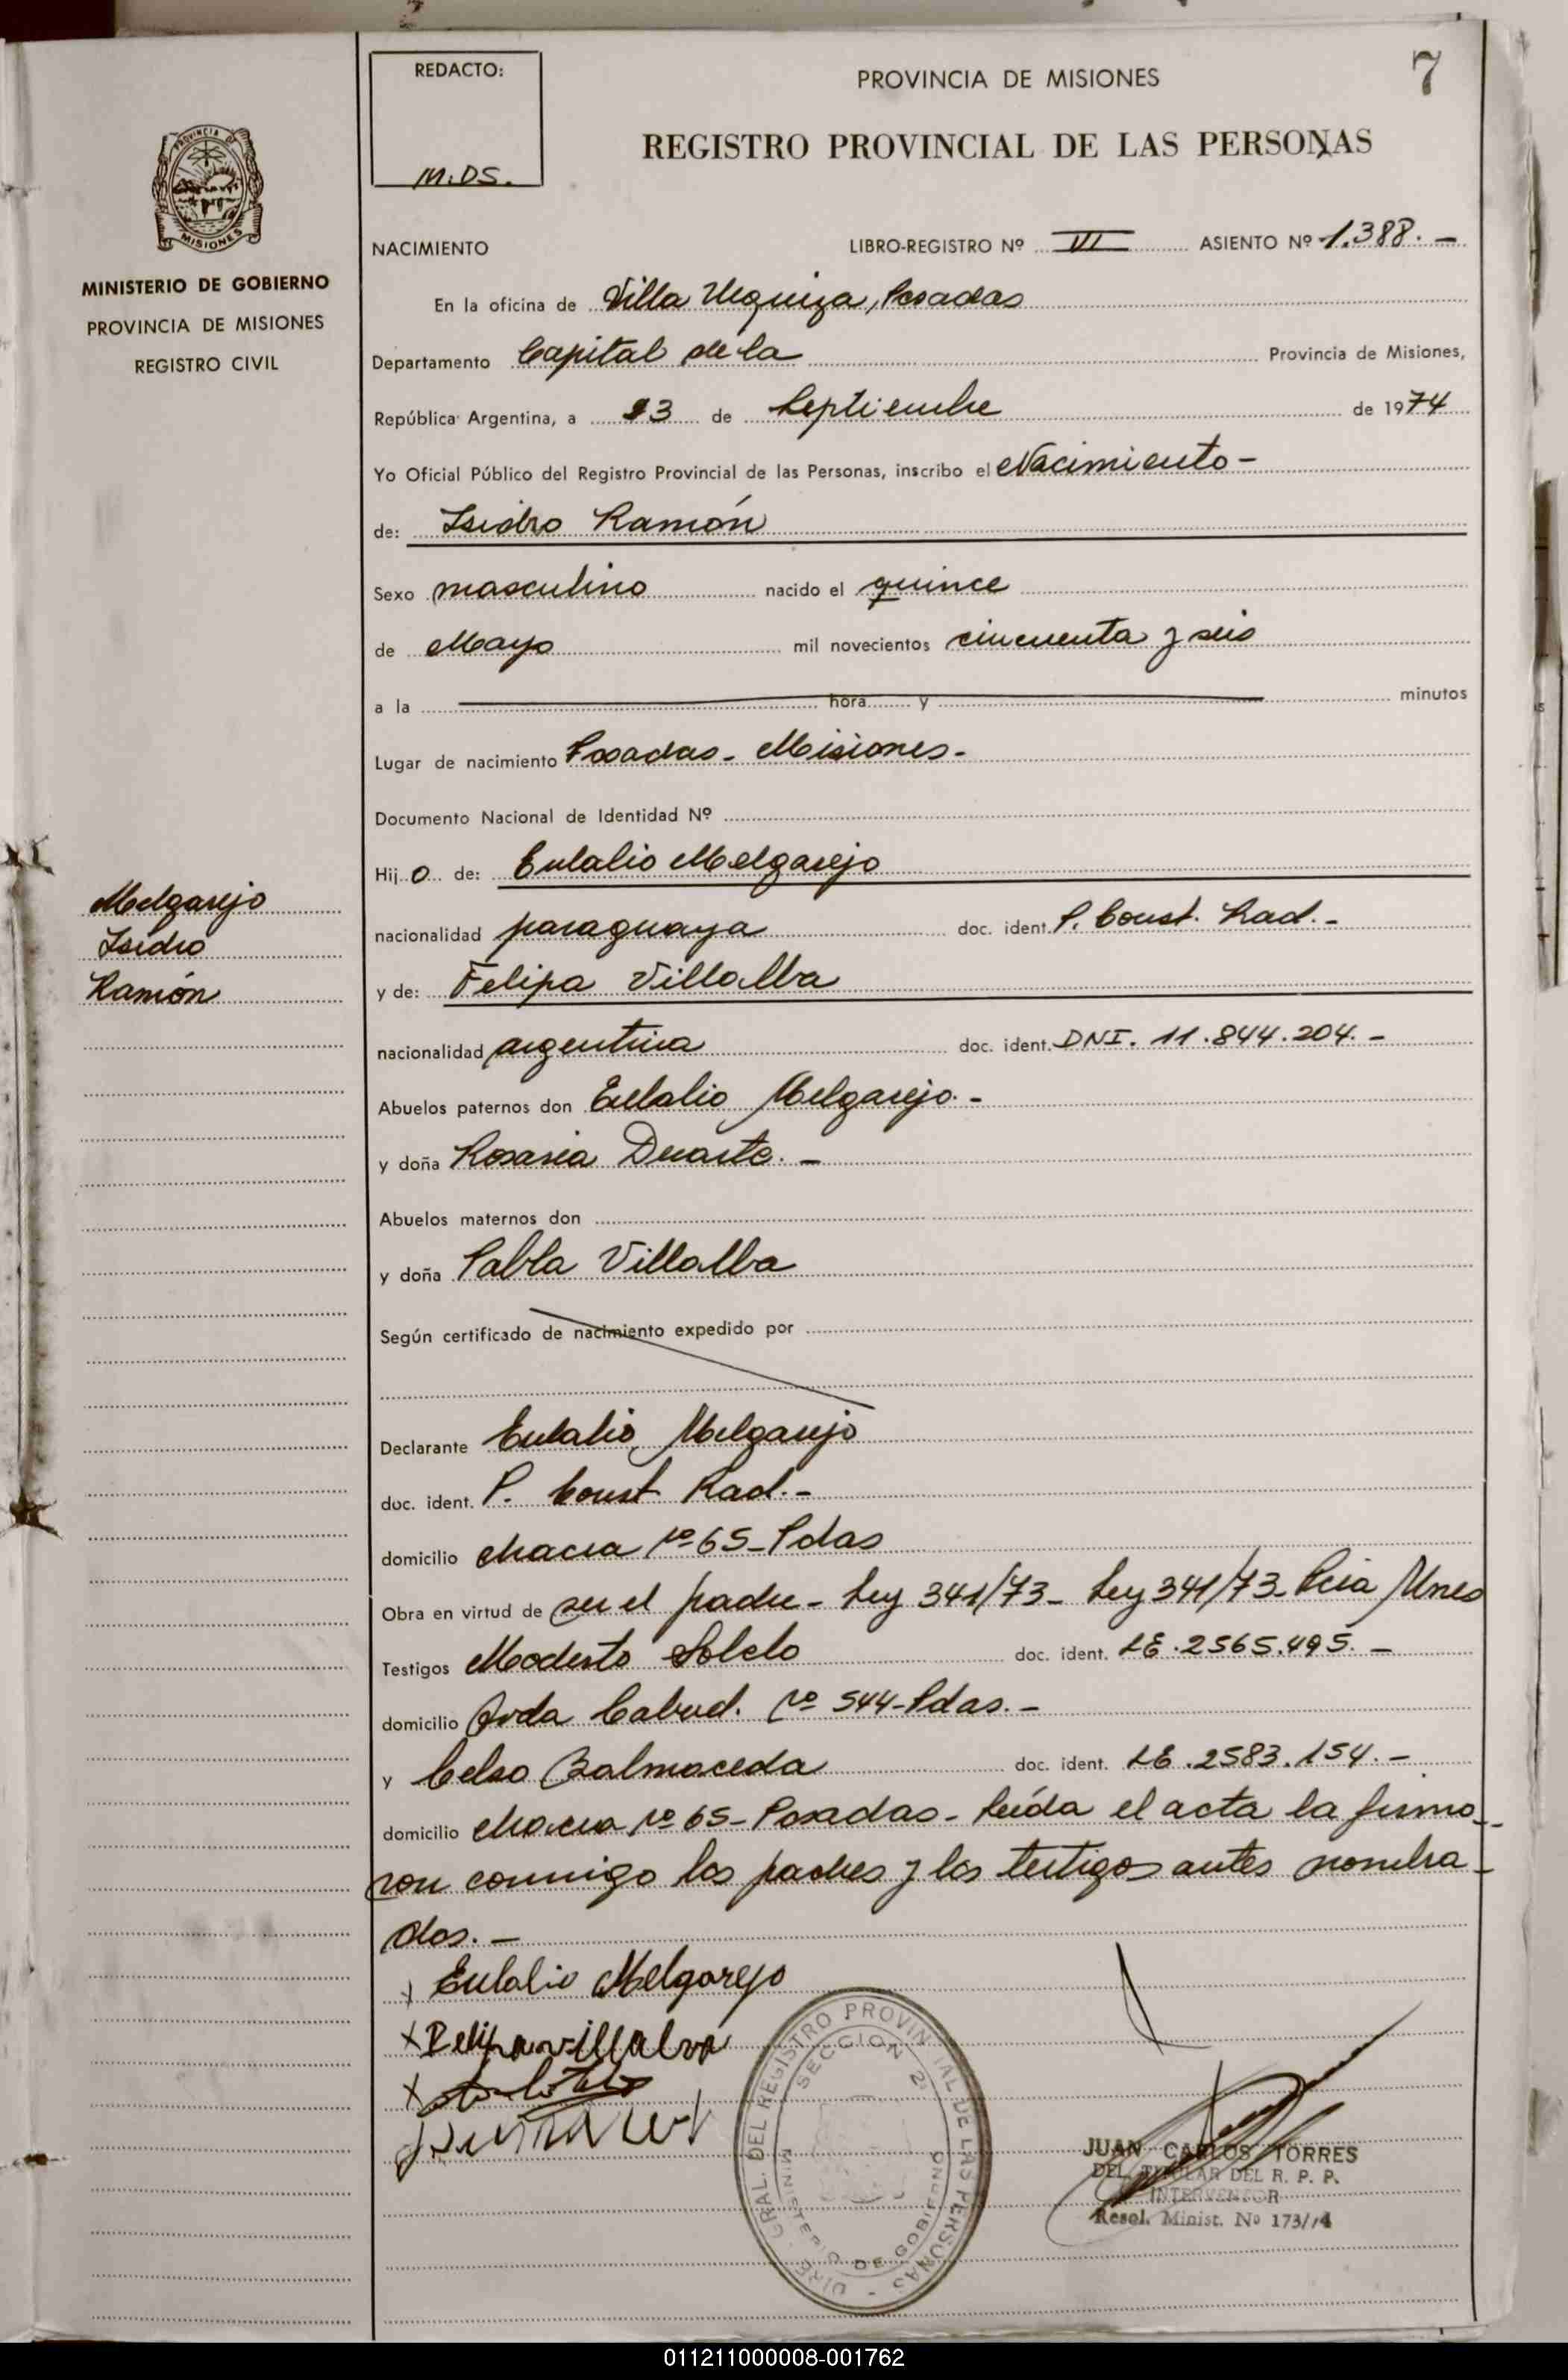 7
REDACTO:
M.DS.
PROVINCIA DE MISIONES
REGISTRO PROVINCIAL DE LAS PERSONAS
PROVINCIA DE
MISIONES
MINISTERIO DE GOBIERNO
PROVINCIA DE MISIONES
REGISTRO CIVIL
NACIMIENTO LIBRO-REGISTRO Nº VI ASIENTO Nº 1.388.-
En la oficina de Villa Urquiza, Posadas
Departamento Capital de la Provincia de Misiones,
República Argentina, a 23 de Septiembre de 1974
Yo Oficial Público del Registro Provincial de las Personas, inscribo el Nacimiento-
de: Isidro Ramón
Sexo masculino nacido el quince
de Mayo mil novecientos cincuenta y seis
a la hora y minutos
Lugar de nacimiento Posadas - Misiones-
Documento Nacional de Identidad Nº
Hij o de: Eulalio Melgarejo
nacionalidad paraguaya doc. ident. P. Const. Rad.-
y de: Felipa Villalba
nacionalidad argentina doc. ident. DNI. 11.844.204.-
Abuelos paternos don Eulalio Melgarejo.-
y doña Rosaria Duarte.-
Abuelos maternos don
y doña Pabla Villalba
Según certificado de nacimiento expedido por
Declarante Eulalio Melgarejo
doc. ident. P. Const Rad.-
domicilio chacra nº 65-Pdas
Obra en virtud de ser el padre - Ley 341/73- Ley 341/73- Pcia Mnes
Testigos Modesto Sotelo doc. ident. LE.2565.495.-
domicilio Avda Cabred. nº 544-Pdas.-
y Celso Balmaceda doc. ident. LE.2583.154.-
domicilio chacra nº 65-Posadas- Leída el acta la firma-
ron conmigo los padres y los testigos antes nombra-
dos.-
Melgarejo
Isidro
Ramón
Eulalio Melgarejo
x Felipa villalva
x
DIRE. GRAL. DEL REGISTRO PROVINCIAL DE LAS PERSONAS -
SECCION 2ª
MINISTERIO DE GOBIERNO
JUAN CARLOS TORRES
DEL. TITULAR DEL R. P. P.
INTERVENTOR
Resol. Minist. Nº 173/74
011211000008-001762